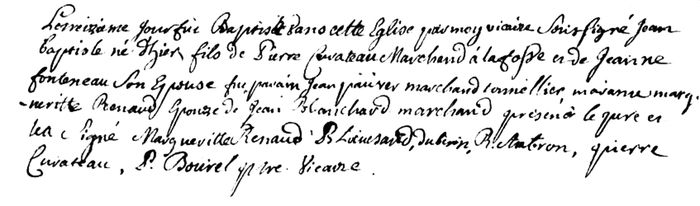 Le treizieme Jour fut Baptisé dans cette Eglise par moy vicaire Soussigné Jean
baptiste né d'hier fils de Pierre Curateau Marchand à la fosse et de Jeanne
fonteneau Son Epouse fut parain Jean marchand tonnellier maraine marg
-ueritte Renaud Epouze de Jean Blanchard marchand présent le pere et
Signé Margueritte Renaud, R. Ambron, pierre
Curateau, P. Bourel ptre. Vicaire.